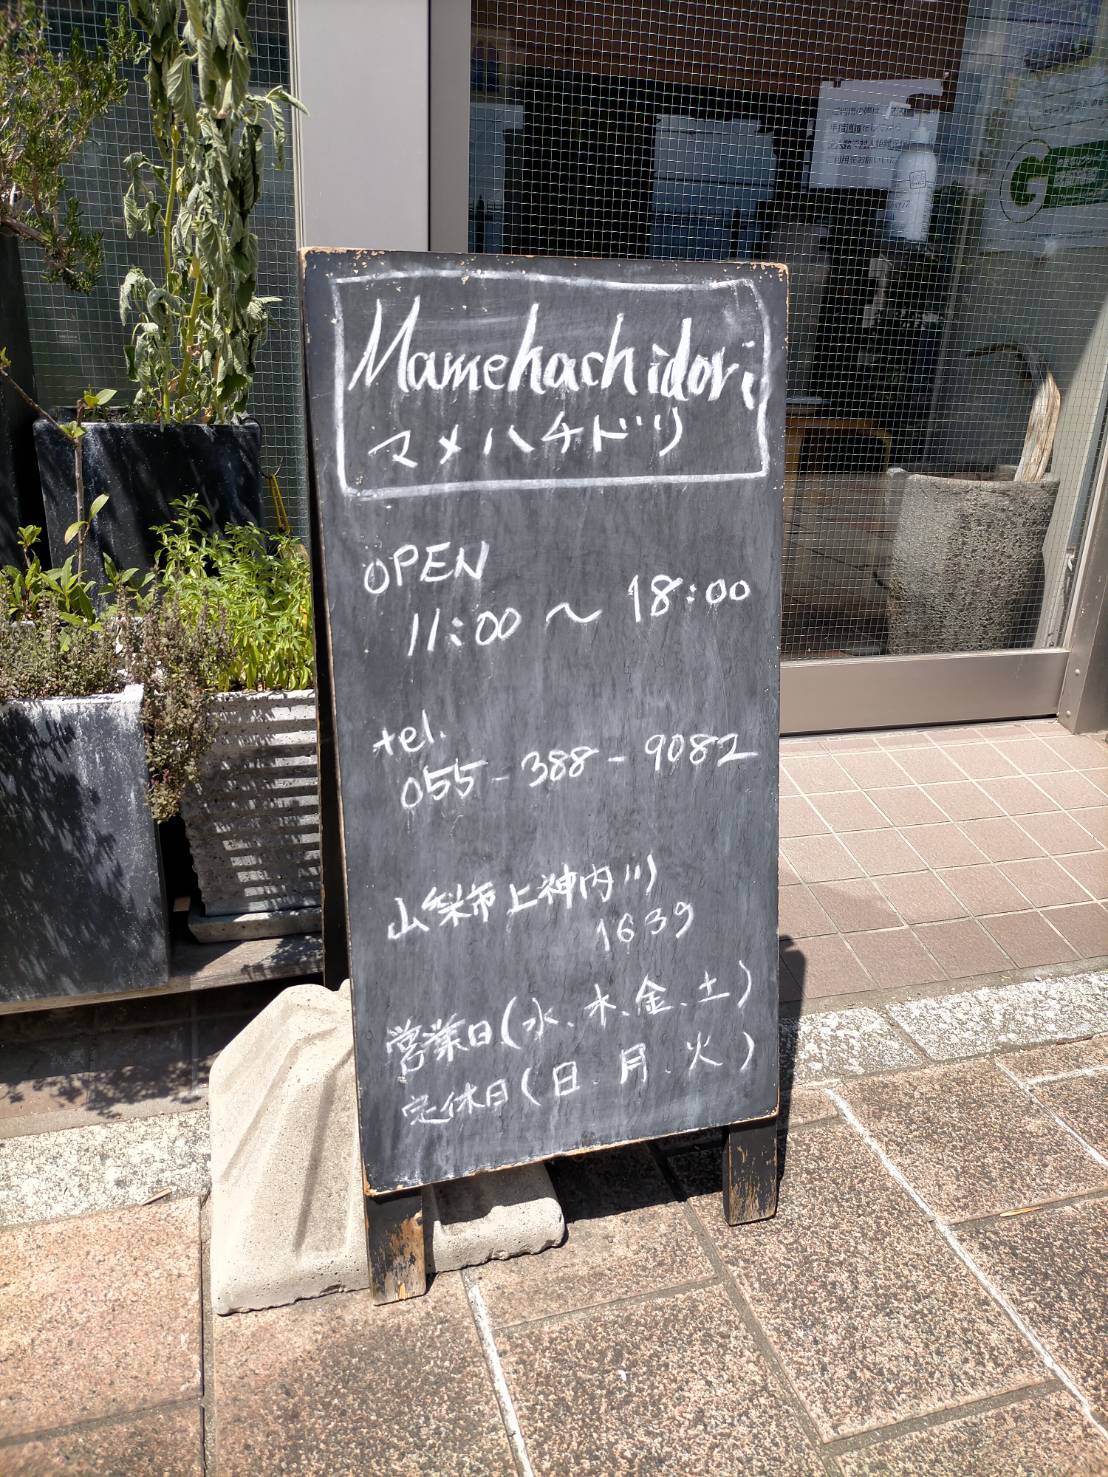 Mamehachidori
マメハチドリ
OPEN
11:00 〜 18:00
tel.
055-388-9082
山梨市上神内川
1639
営業日(水、木、金、土)
定休日(日、月、火)